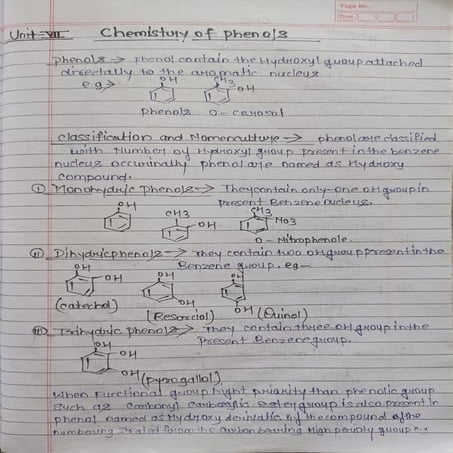 Page No.
Date
Unit-VII Chemistry of phenols
phenols → phenol contain the Hydroxyl group attached
directally to the aromatic nucleus
e.g → OH CH3 OH
phenols o - cerosol
classification and Nomenculture → phenol are classified
with Number of Hydroxyl group present in the benzene
nucleus occurinally phenol are named as Hydroxy
compound.
① Monohydric phenols → They contain only one OH group in
present Benzene nucleus.
OH CH3 OH CH3 NO3
o - Nitrophenole
② Dihydric phenols → They contain two OH group present in the
Benzene group. eg —
OH OH OH OH OH OH
(catechol) (Resorciol) (Quinol)
③ Trihydric phenols → They contain three OH group in the
Present Benzene group.
OH OH OH (pyrogallol)
When Functional group hight priarity than phenolic group
Such as carbonyl carboxylic ester group is also present in
phenol named as Hydroxy derivatic of the compound of the
numbering from the carbon bearing High group